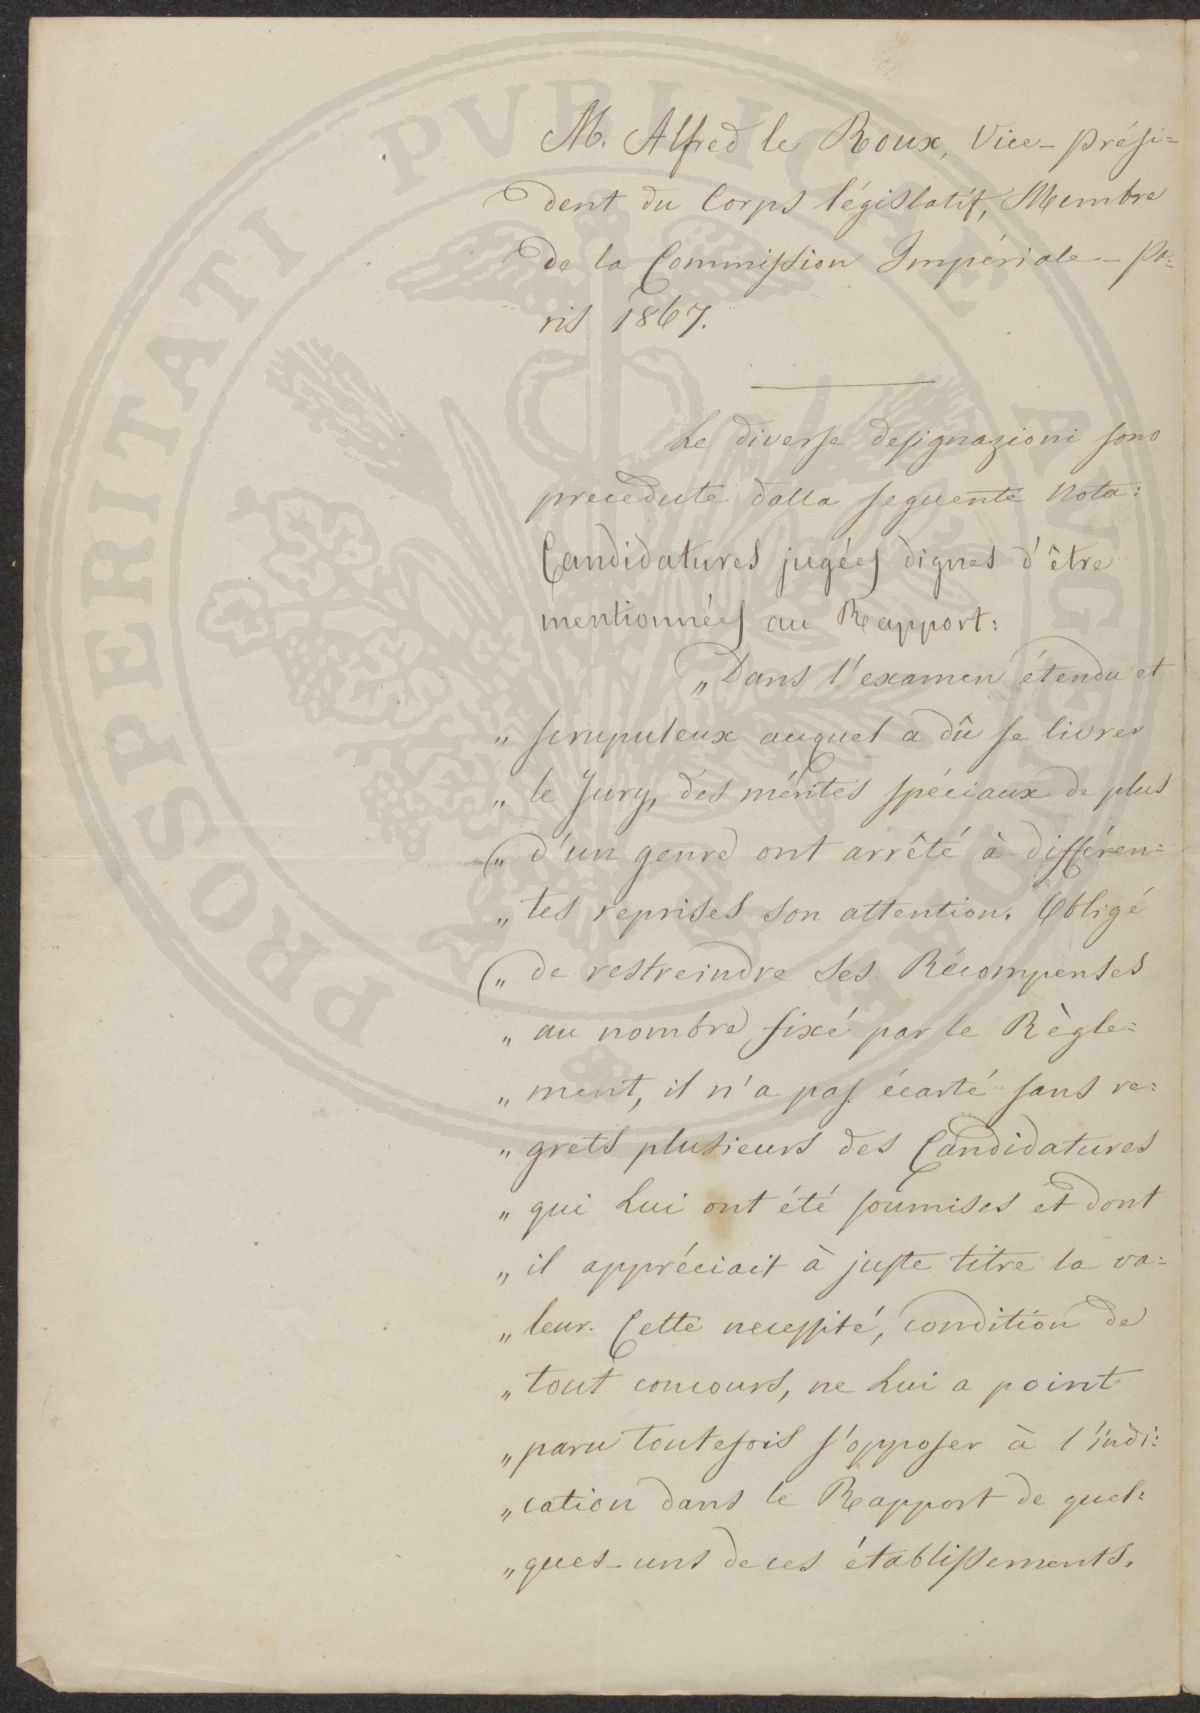 M. Alfred le Roux, Vice-Prési=
dent du Corps législatif, Membre
de la Commission Impériale – Pa=
ris 1867.
Le diverse designazioni sono
precedute dalla seguente nota:
Candidatures jugées dignes d'être
mentionnées au Rapport:
„ Dans l'examen étendu et
„ scrupuleux auquel a dû se livrer
„ le Jury, des mérites spéciaux de plus
„ d'un genre ont arrêté à différen=
„ tes reprises son attention. Obligé
„ de restreindre ses Récompenses
„ au nombre fixé par le Règle=
„ ment, il n'a pas écarté sans re=
„ grets plusieurs des Candidatures
„ qui Lui ont été soumises et dont
„ il appréciait à juste titre la va=
„ leur. Cette necessité, condition de
„ tout concours, ne Lui a point
„ paru toutefois s'opposer à l'indi=
„ cation dans le Rapport de quel=
„ ques-uns de ces établissements.
PROSPERITATI PVBLICAE AVGENDAE